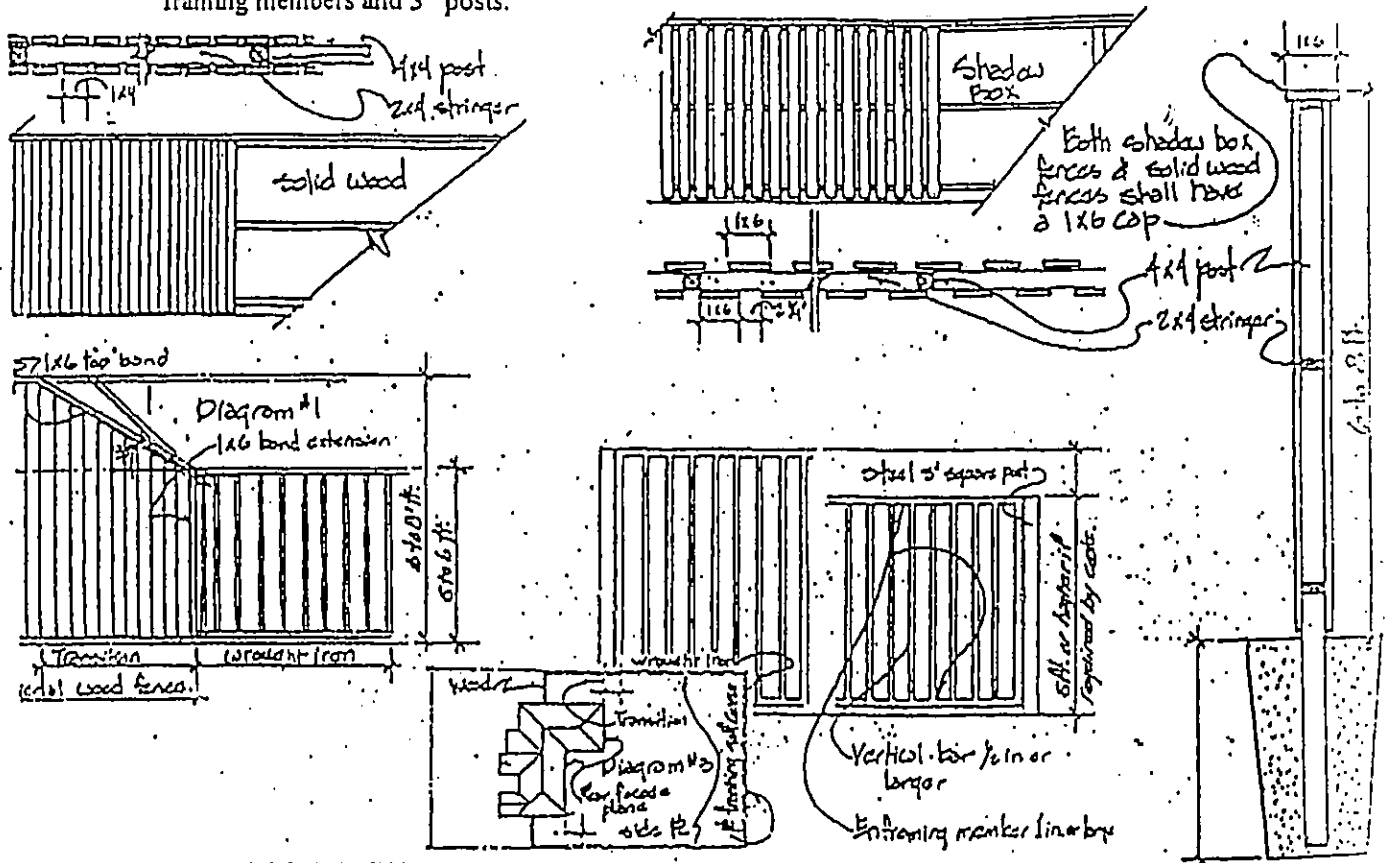 framing members and 3" posts.
4x4 post
2x4 stringer
1x4
solid wood
Shadow
Box
1x6
Both shadow box
fences & solid wood
fences shall have
a 1x6 cap
1x6
4x4 post
2x4 stringer
1x6
6 to 8 ft.
1x6 top band
Diagram #1
1x6 band extension
6 to 8 ft.
5 to 6 ft.
Transition
wrought iron
wood fences
steel 3" square post
5 ft. or
required by code.
wrought iron
wood
Transition
Diagram #3
rear facade
plane
side
fronting golf course
Vertical bar 1/2 in or
larger
Enframing member 1 in or